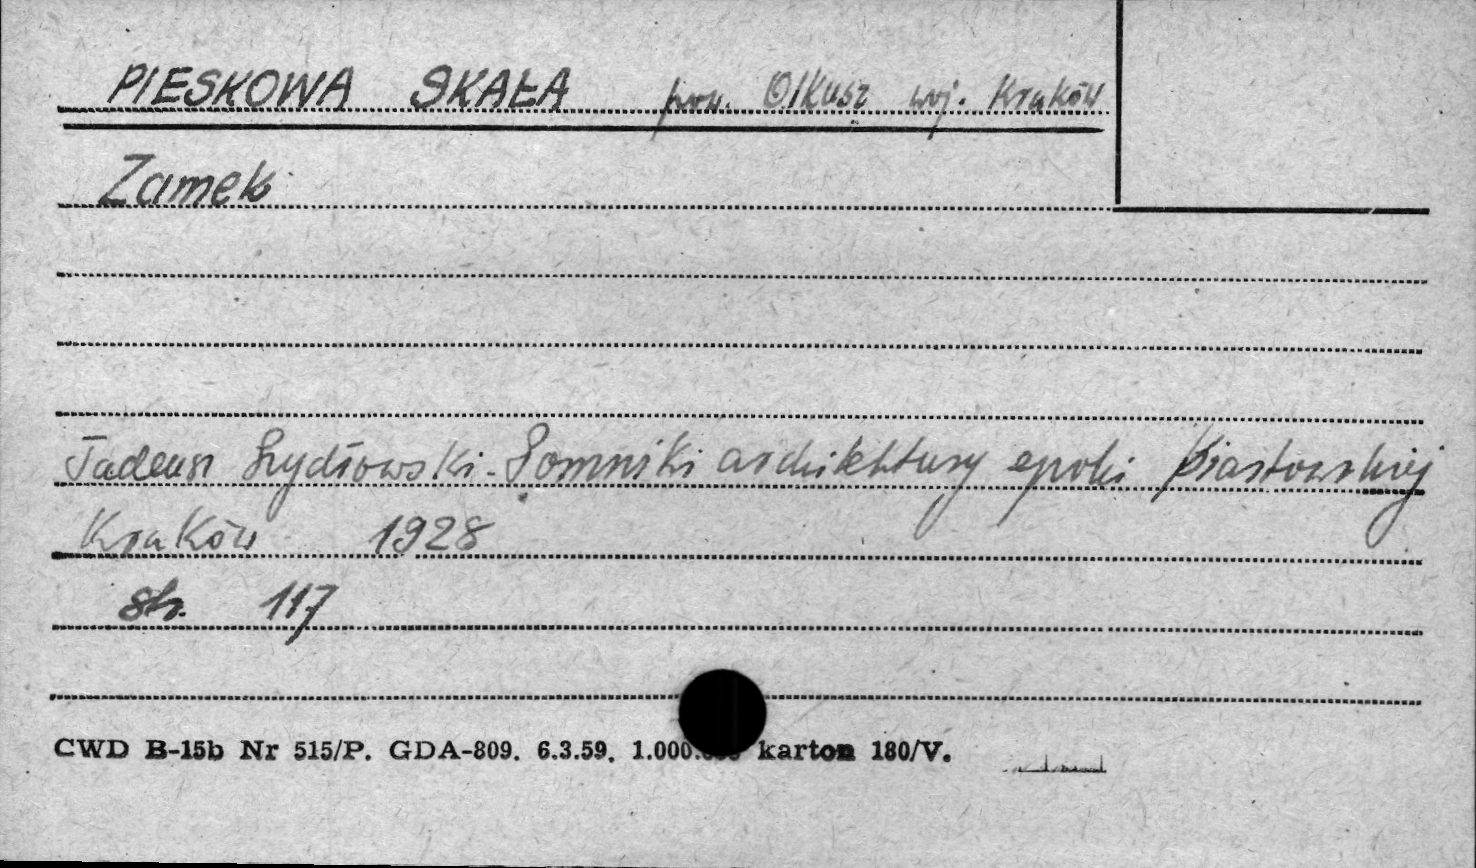 PIESKOWA SKAŁA pow. Olkusz woj. Kraków
Zamek
Tadeusz Szydłowski - Pomniki architektury epoki Piastowskiej
Kraków 1928
str. 117
CWD B-15b Nr 515/P. GDA-809. 6.3.59. karton 180/V.